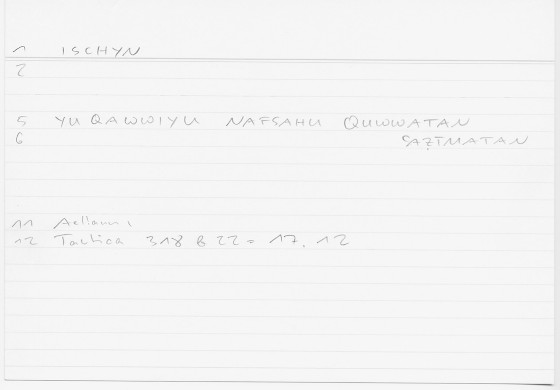 1 ISCHYN
2
5 YUQAWWIYU NAFSAHU QUWWATAN
6 ꜤAẒĪMATAN
11 Aeliani
12 Tactica 318 B 22 = 17.12